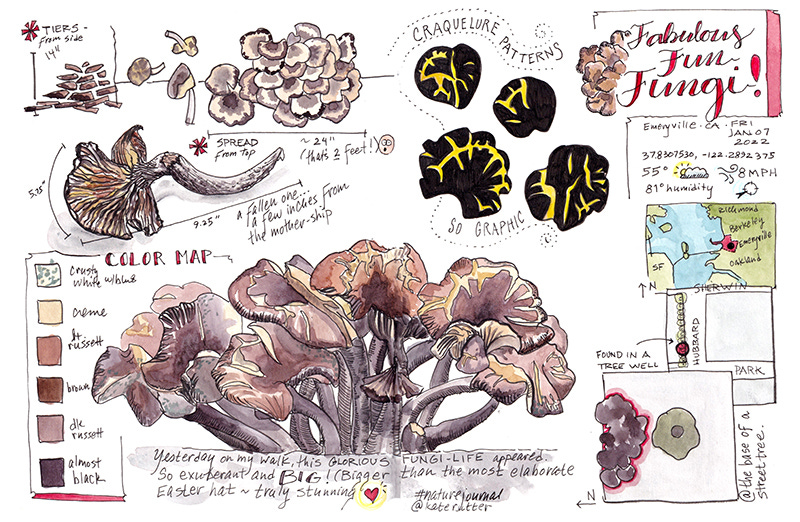 TIERS-
from side
14"
CRAQUELURE PATTERNS
SO GRAPHIC
Fabulous
Fun
Fungi!
Emeryville · CA · FRI
JAN 07
2022
37.8307530, -122.2892375
55°
8 MPH
81° humidity
Richmond
Berkeley
Emeryville
Oakland
SF
N
SHERWIN
HUBBARD
FOUND IN A
TREE WELL
PARK
@ the base of a
street tree.
N
SPREAD
from top
~ 24"
(that's 2 feet!)
5.75"
9.25"
a fallen one...
a few inches from
the mother-ship
COLOR MAP
crusty
white w/blue
creme
lt
russett
brown
dk
russett
almost
black
Yesterday on my walk, this GLORIOUS FUNGI-LIFE appeared.
So exuberant and BIG! (Bigger than the most elaborate
Easter hat ~ truly stunning
#naturejournal
@katerutter